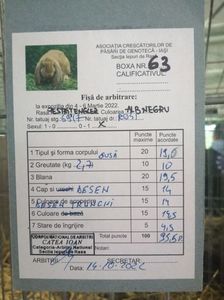 ASOCIAȚIA CRESCĂTORILOR
DE PĂSĂRI DE GENOTECĂ - IAȘI
Secția Iepuri de Rasă
BOXA NR 63
CALIFICATIVUL
Fișă de arbitrare:
la expoziția din 4 - 6 Martie 2022
Rasa MESTATENGER Culoarea ALB NEGRU
Nr. tatuaj stg. Nr. tatuaj dr.
Sexul: 1 - 0 0 - 1 X
Puncte maxime Puncte acordate
1 Tipul și forma corpului 20 19,0
2 Greutatea (kg) 2,7 10 10
3 Blana 20 19,5
4 Cap și DESEN 15 14
5 Culoarea de acoperire 15 14
6 Culoare de bază 15 14,5
7 Stare de îngrijire 5 4,5
TOTAL puncte 100 95,5 P.
CORPUL NAȚIONAL DE ARBITRI
CATEA IOAN
Categoria-Arbitru Național
Secțiunea Iepuri de Rasă
ARBITRU SECRETAR
Data 14.10.2022